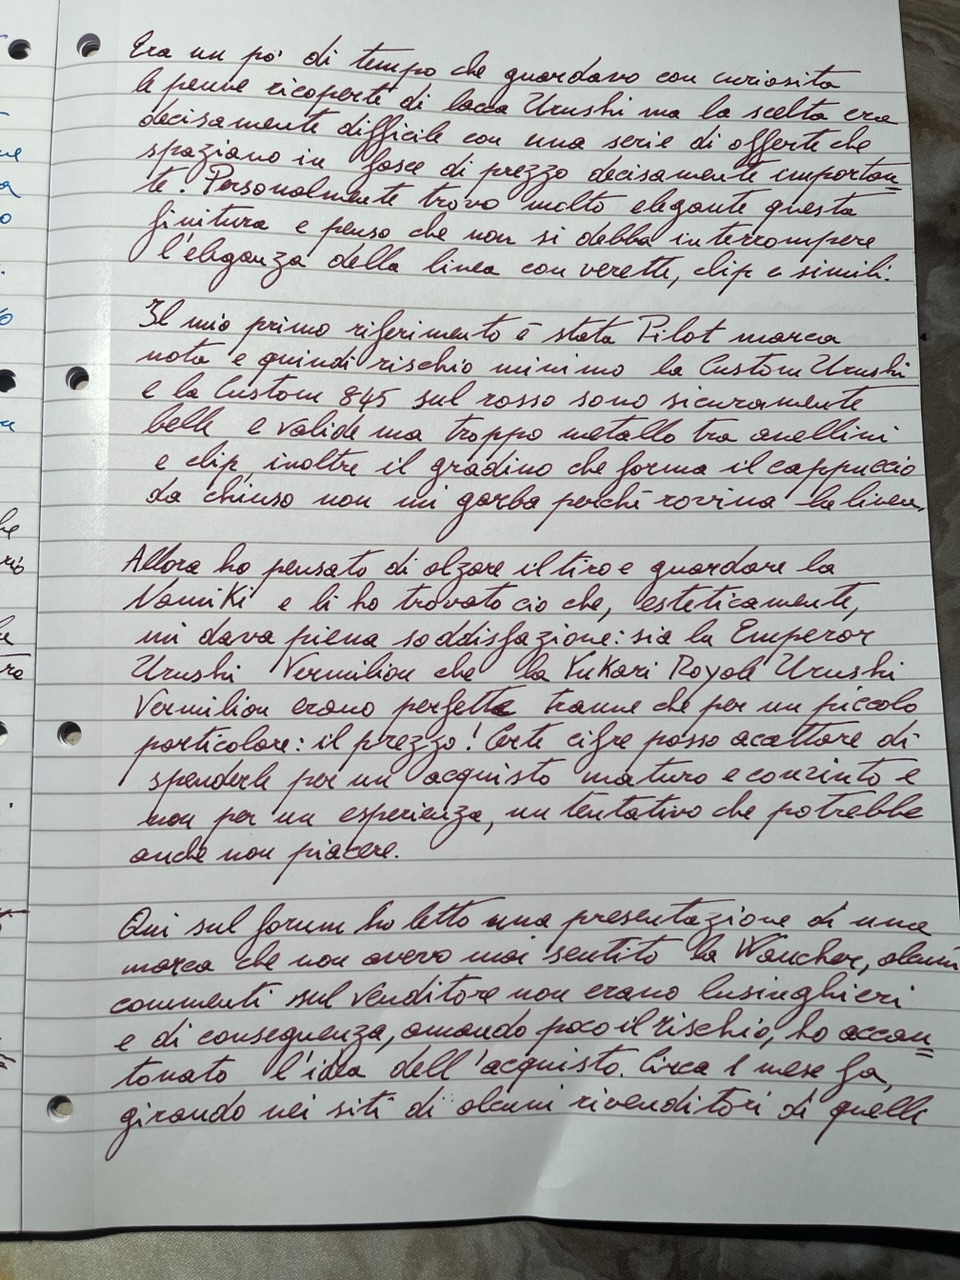 Era un po' di tempo che guardavo con curiosita
le penne ricoperte di lacca Urushi ma la scelta era
decisamente difficile con una serie di offerte che
spaziano in fasce di prezzo decisamente importan=
te. Personalmente trovo molto elegante questa
finitura e penso che non si debba interrompere
l'eleganza della linea con verette, clip e simili.
Il mio primo riferimento è stata Pilot marca
nota e quindi rischio minimo la Custom Urushi
e la Custom 845 sul rosso sono sicuramente
belle e valide ma troppo metallo tra anellini
e clip, inoltre il gradino che forma il cappuccio
da chiuso non mi garba perché rovina la linea.
Allora ho pensato di alzare il tiro e guardare la
Namiki e li ho trovato cio che, esteticamente,
mi dava piena soddisfazione: sia la Emperor
Urushi Vermilion che la Yukari Royale Urushi
Vermilion erano perfette tranne che per un piccolo
particolare: il prezzo! Certe cifre posso accattare di
spenderle per un acquisto maturo e convinto e
non per un esperienza, un tentativo che potrebbe
anche non piacere.
Qui sul forum ho letto una presentazione di una
marca che non avevo mai sentito la Wancher, alcuni
commenti sul venditore non erano lusinghieri
e di conseguenza, amando poco il rischio, ho accan=
tonato l'idea dell'acquisto. Circa 1 mese fa,
girando nei siti di alcuni rivenditori di quelli